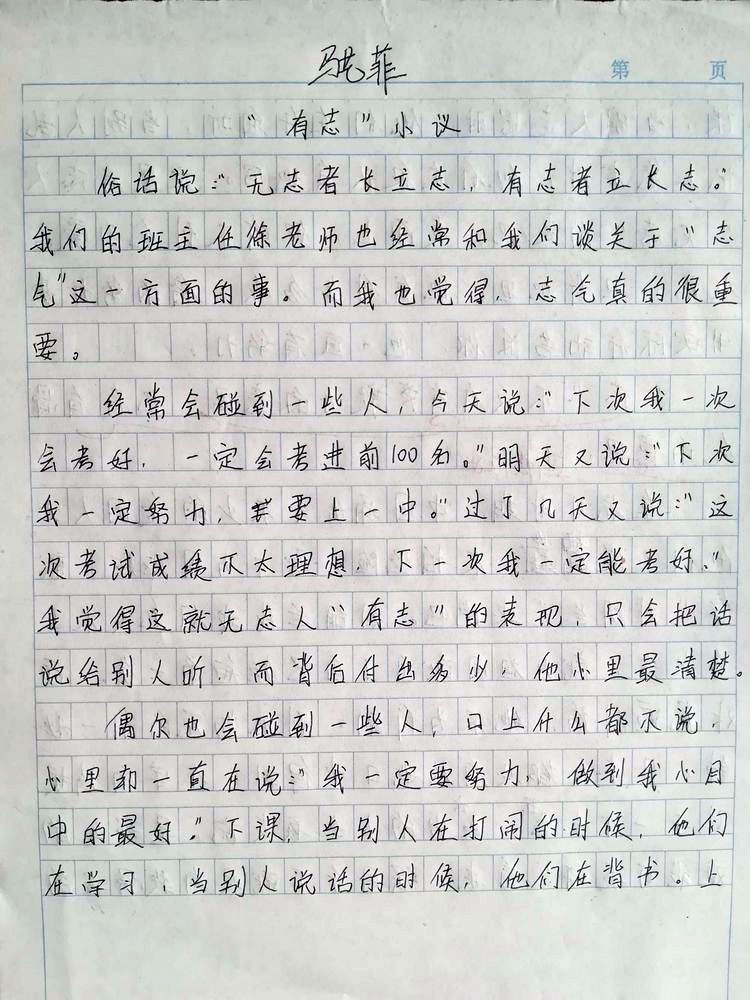 菲
第 页
“有志”小议
俗话说：“无志者长立志，有志者立长志。”
我们的班主任徐老师也经常和我们谈关于“志
气”这一方面的事。而我也觉得，志气真的很重
要。
经常会碰到一些人，今天说：“下次我一次
会考好，一定会考进前100名。”明天又说：“下次
我一定努力，要上一中。”过了几天又说：“这
次考试成绩不太理想，下一次我一定能考好。”
我觉得这就无志人“有志”的表现，只会把话
说给别人听，而背后付出多少，他心里最清楚。
偶尔也会碰到一些人，口上什么都不说，
心里却一直在说：“我一定要努力，做到我心目
中的最好。”下课，当别人在打闹的时候，他们
在学习，当别人说话的时候，他们在背书。上